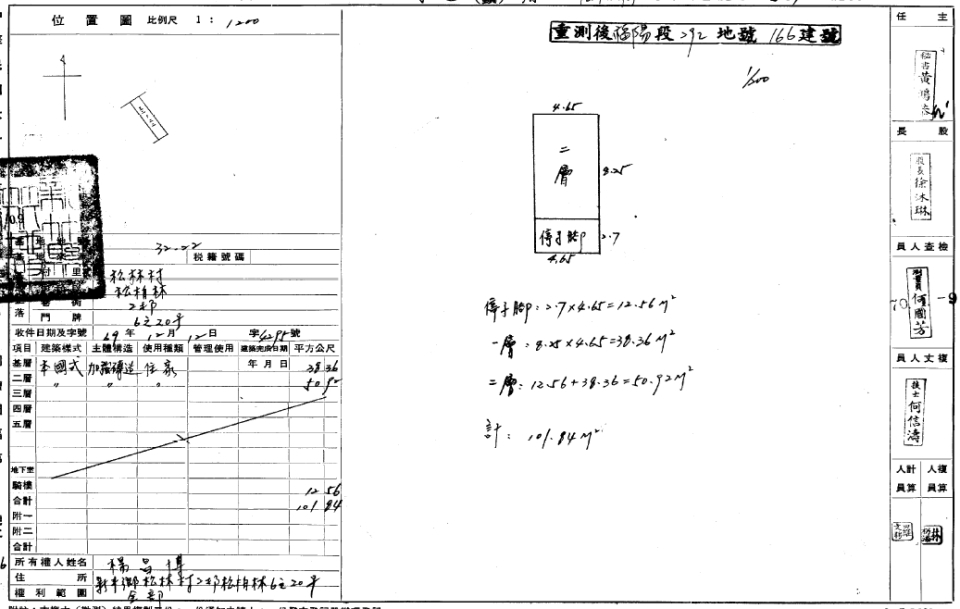 位置圖 比例尺 1：1200
重測後福陽段292地號166建號
1/200
4.65
二層
8.25
停子腳
2.7
4.65
停子腳：2.7×4.65=12.56㎡
一層：8.25×4.65=38.36㎡
二層：12.56+38.36=50.92㎡
計：101.84㎡
32-22
稅籍號碼
松林村
松柏林
2邻
門牌
6之20号
收件日期及字號 69年12月12日 字4291號
項目 建築樣式 主體構造 使用種類 管理使用 建築完成日期 平方公尺
基層 本國式 加強磚造 住家 年月日 38.36
二層 〃 〃 〃 50.92
三層
四層
五層
地下室
騎樓 12.56
合計 101.84
附一
附二
合計
所有權人姓名 楊昌博
住所 新丰鄉松林村2邻松柏林6之20号
權利範圍 全部
主任
股長
股長徐冰琳
檢查人員
測量員何國芳
70 -9
複丈人員
技士何信濤
計算人員
複算人員